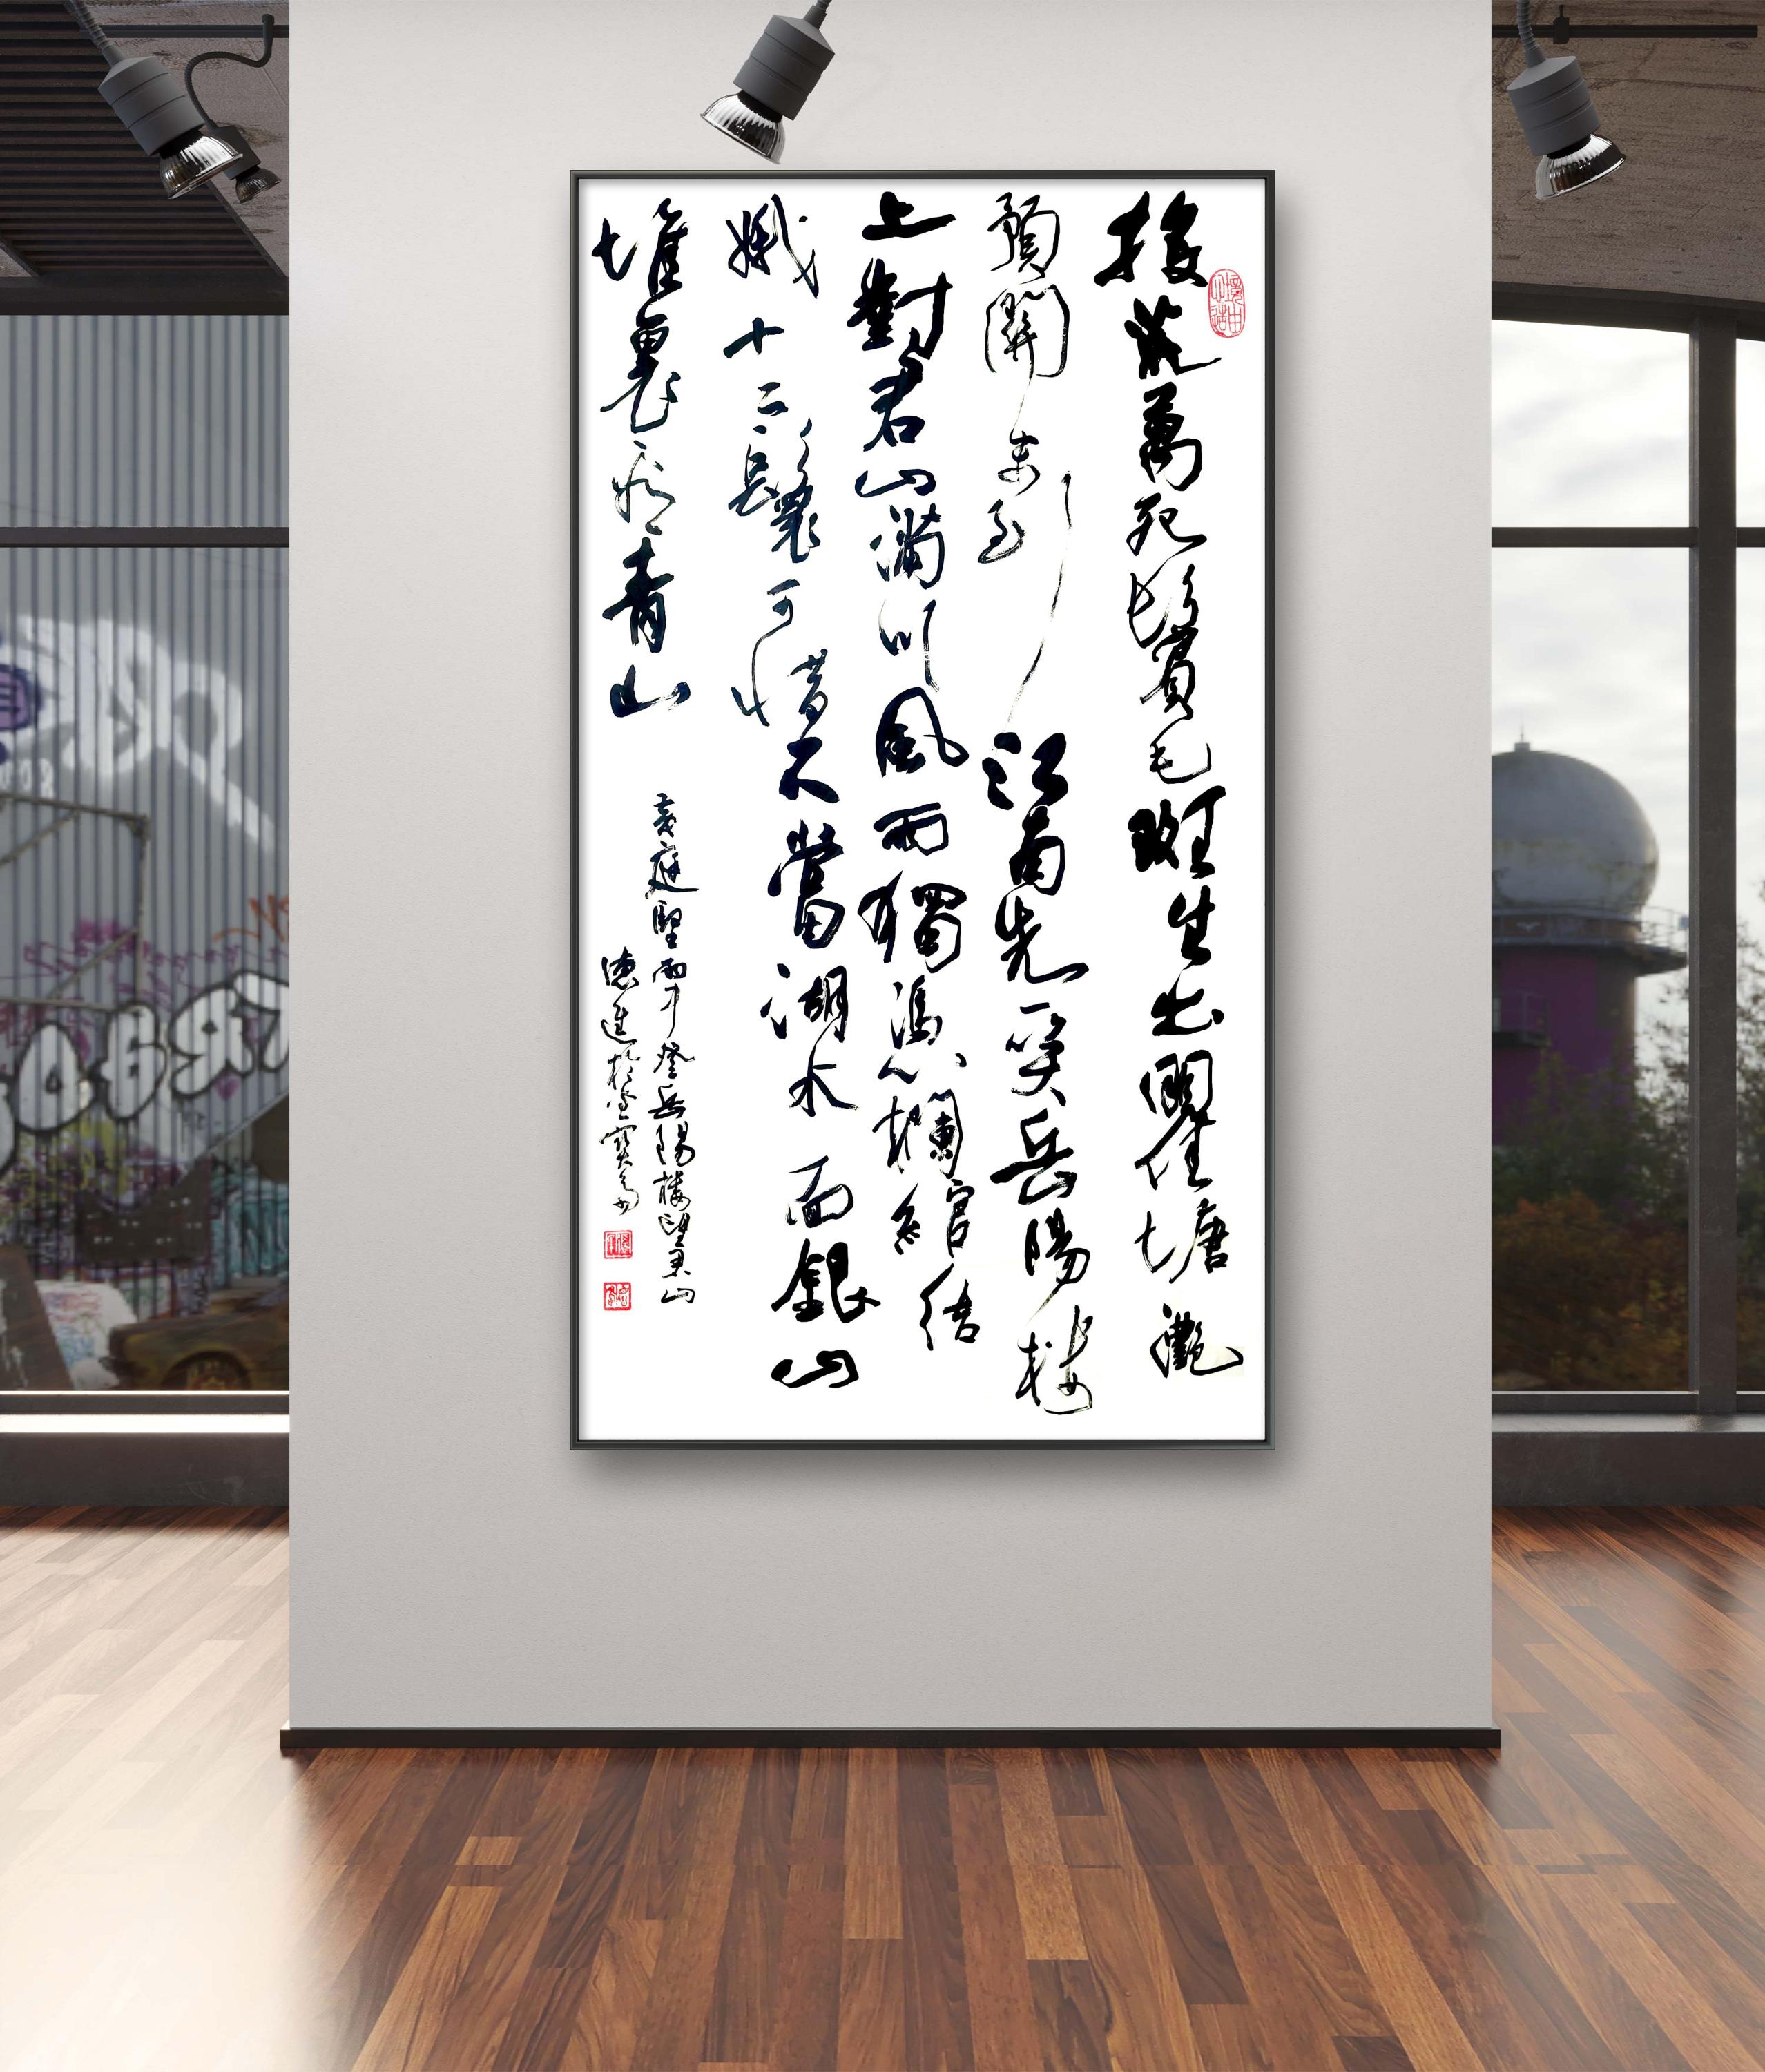 投荒萬死鬢毛斑生出瞿塘灩
預關未到江南先一笑岳陽樓
上對君山滿川風雨獨憑欄綰結
娥十二鬟可惜不當湖水面銀山
堆裏看青山
黃庭堅雨中登岳陽樓望君山
德進於